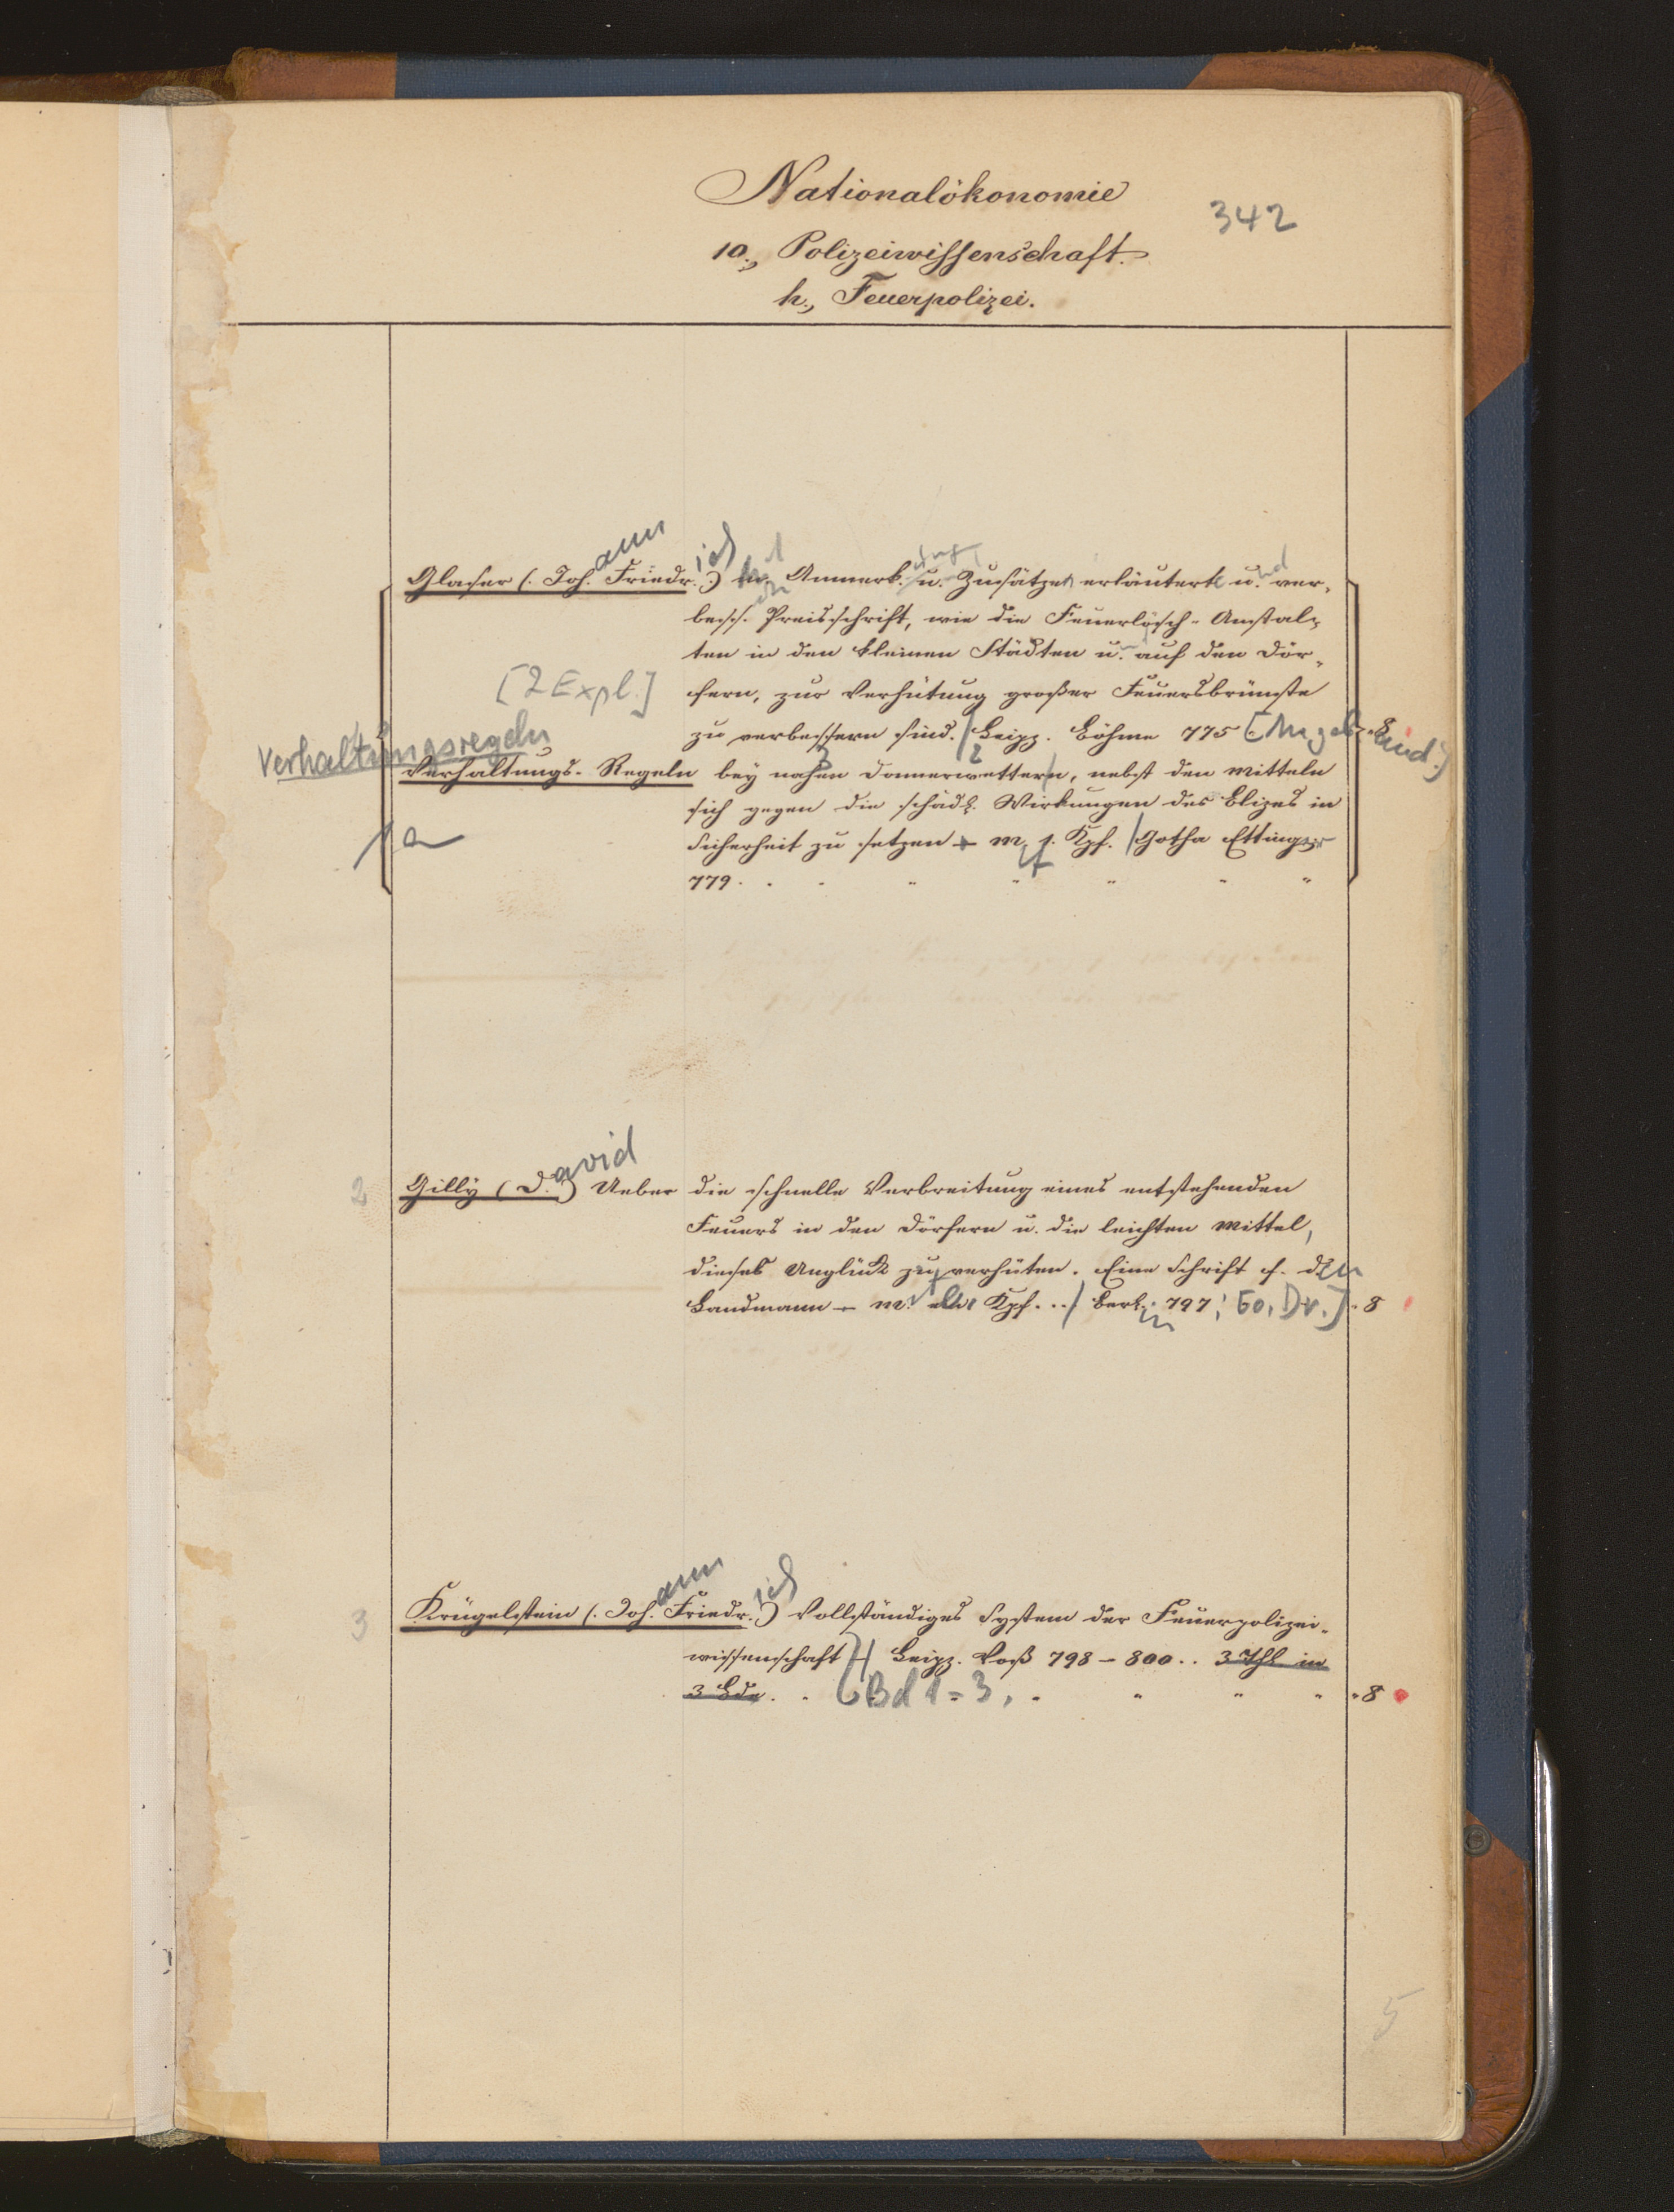 Nationalökonomie
342
10., Polizeiwissenschaft.
h., Feuerpolizei.
Glaser (. Joh.ann Friedr.ich) Anmerk. u. Zusätzen erläutert u.nd ver,
bess. Preisschrift, wie die Feuerlösch- Anstal,
ten in den kleinen Städten u. auf den Dör,
[2 Expl.] fern, zur Verhütung großer Feuersbrünste
zu verbessern sind. / Leipz. Böhme 775 [M. geb. 8
Verhaltungsregeln
Verhaltungs- Regeln bey nahen Donnerwettern, nebst den Mitteln
sich gegen die schädl. Wirkungen des Blizes in
1a Sicherheit zu setzen – m. 1. Kpf. / Gotha Ettinger
779.
2 Gilly (D.avid) Ueber die schnelle Verbreitung eines entstehenden
Feuers in den Dörfern u. die leichten Mittel,
dieses Unglück zu verhüten. Eine Schrift f. den
Landmann – m. Kpf. . . / Berl.in 797; Eo. Dr.] 8
3 Krügelstein (. Joh.ann Friedr.ich) Vollständiges System der Feuerpolizei-
wissenschaft / Leipz. Voß 798 – 800 . . 3 Thl in
3 Bde . . Bd 1-3, 8
5